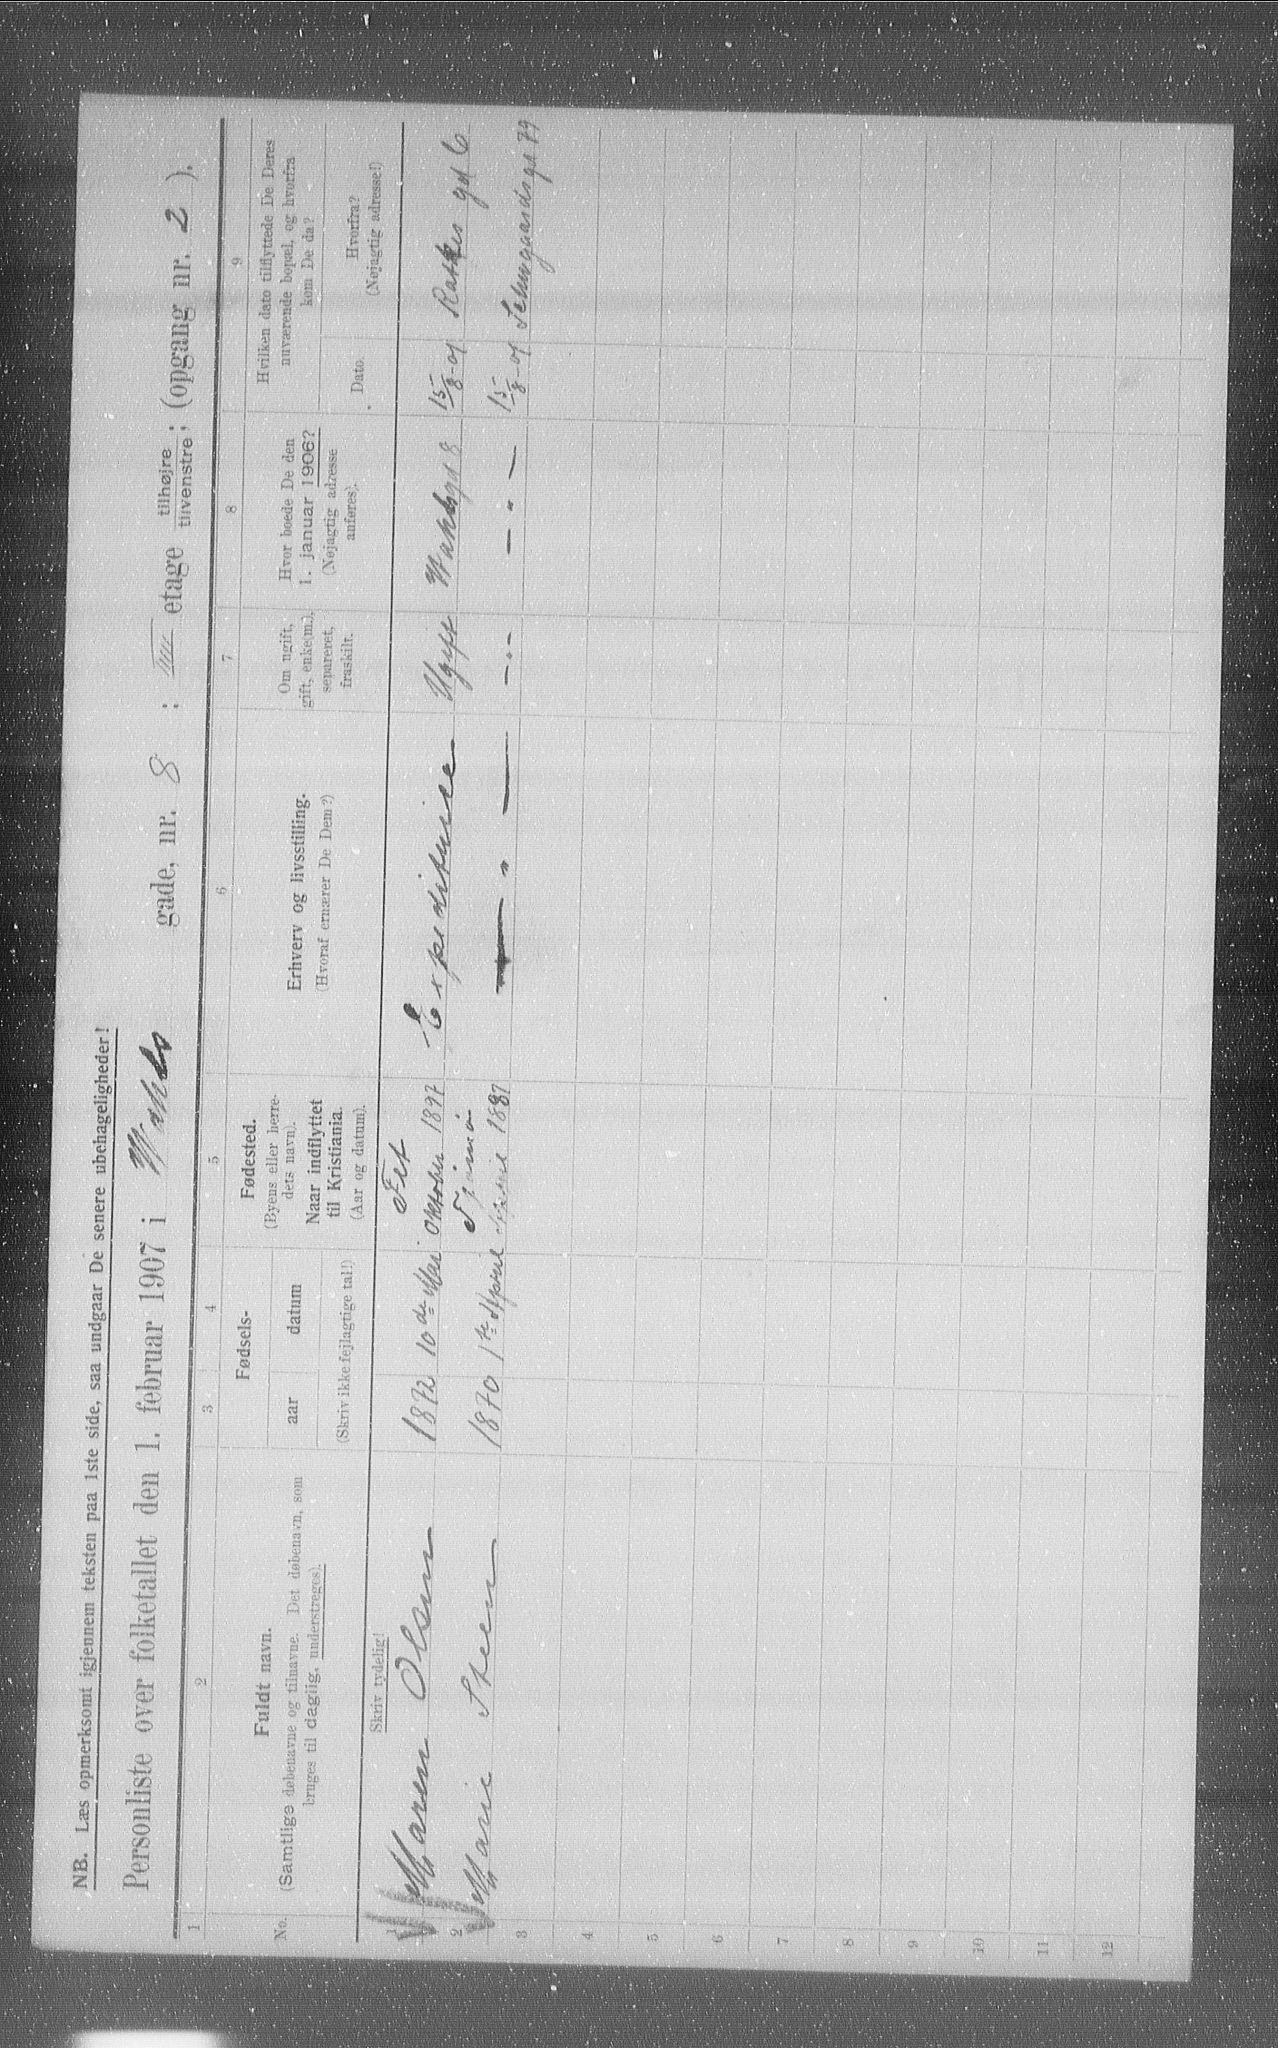 NB. Læs opmerksomt igjennem teksten paa 1ste side, saa undgaar De senere ubehageligheder!
Personliste over folketallet den 1. februar 1907 i Wahls gade, nr. 8 ; IIII etage tilhøjre ; tilvenstre ; (opgang nr. 2 ).
1 2 3 4 5 6 7 8 9
No.
Fuldt navn.
(Samtlige døbenavne og tilnavne. Det døbenavn, som
bruges til daglig, understreges).
Skriv tydelig!
Fødsels-
aar datum
(Skriv ikke fejlagtige tal!)
Fødested.
(Byens eller herre-
dets navn).
Naar indflyttet
til Kristiania.
(Aar og datum).
Erhverv og livsstilling.
(Hvoraf ernærer De Dem?)
Om ugift,
gift, enke(m.),
separeret,
fraskilt.
Hvor boede De den
1. januar 1906?
(Nøjagtig adresse
anføres).
Hvilken dato tilflyttede De Deres
nuværende bopæl, og hvorfra
kom De da?
Dato.
Hvorfra?
(Nøjagtig adresse!)
Fet
1 Maren Olsen 1872 10de Mai Oktober 1897 Expeditrice Ugift Wahlsgd 8 15/8-01 Rathkes gd 6
2 Marie Steen 1870 1te April 1887 — " — — " — — " — 15/8-01 Schweigaardsgd 79
3
4
5
6
7
8
9
10
11
12